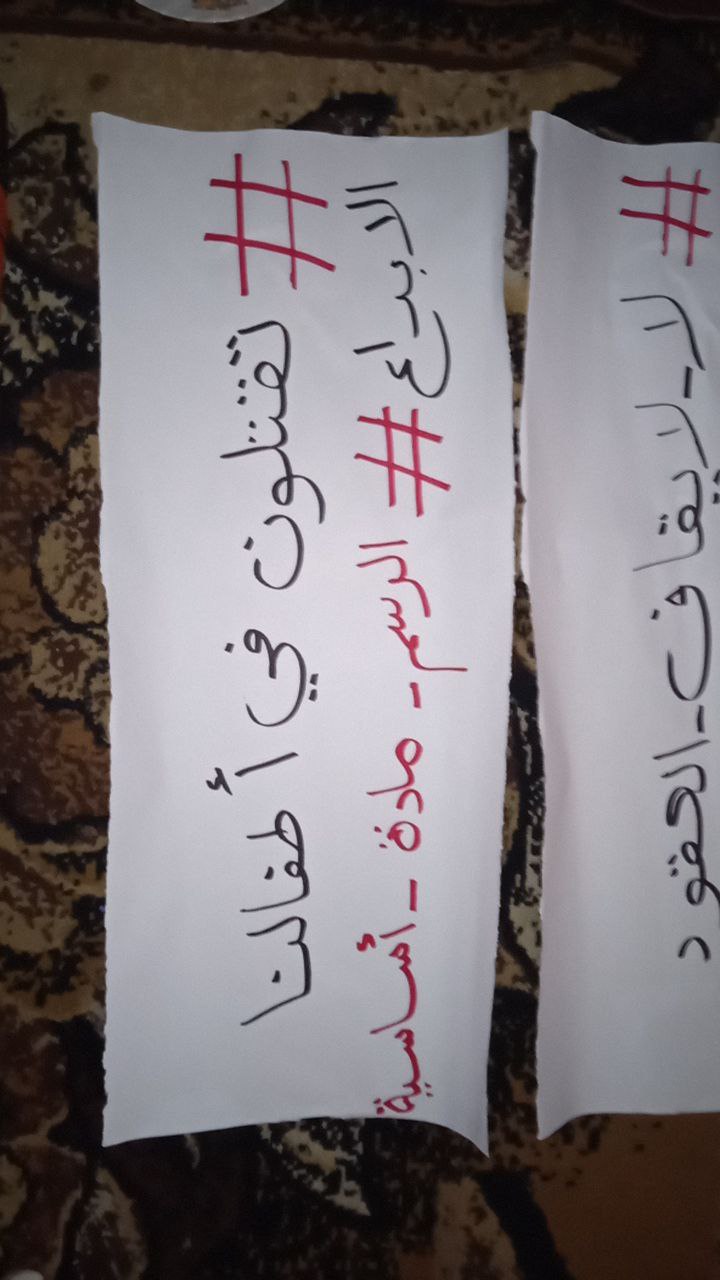 # تقتلون في أطفالنا
الابداع # الرسم - مادة - أساسية
# لا - لايقاف - العقود